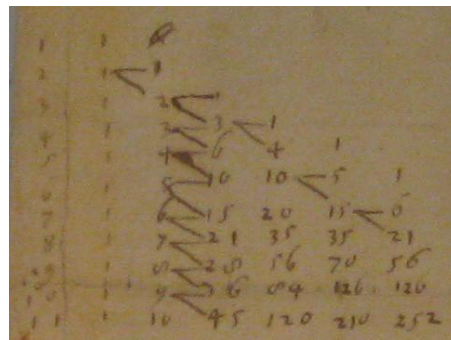 1 1
2 1 1
3 1 2 1
4 1 3 3 1
5 1 4 6 4 1
1 5 10 10 5 1
7 1 6 15 20 15 6
8 1 7 21 35 35 21
9 1 8 28 56 70 56
10 1 9 36 84 126 126
11 1 10 45 120 210 252